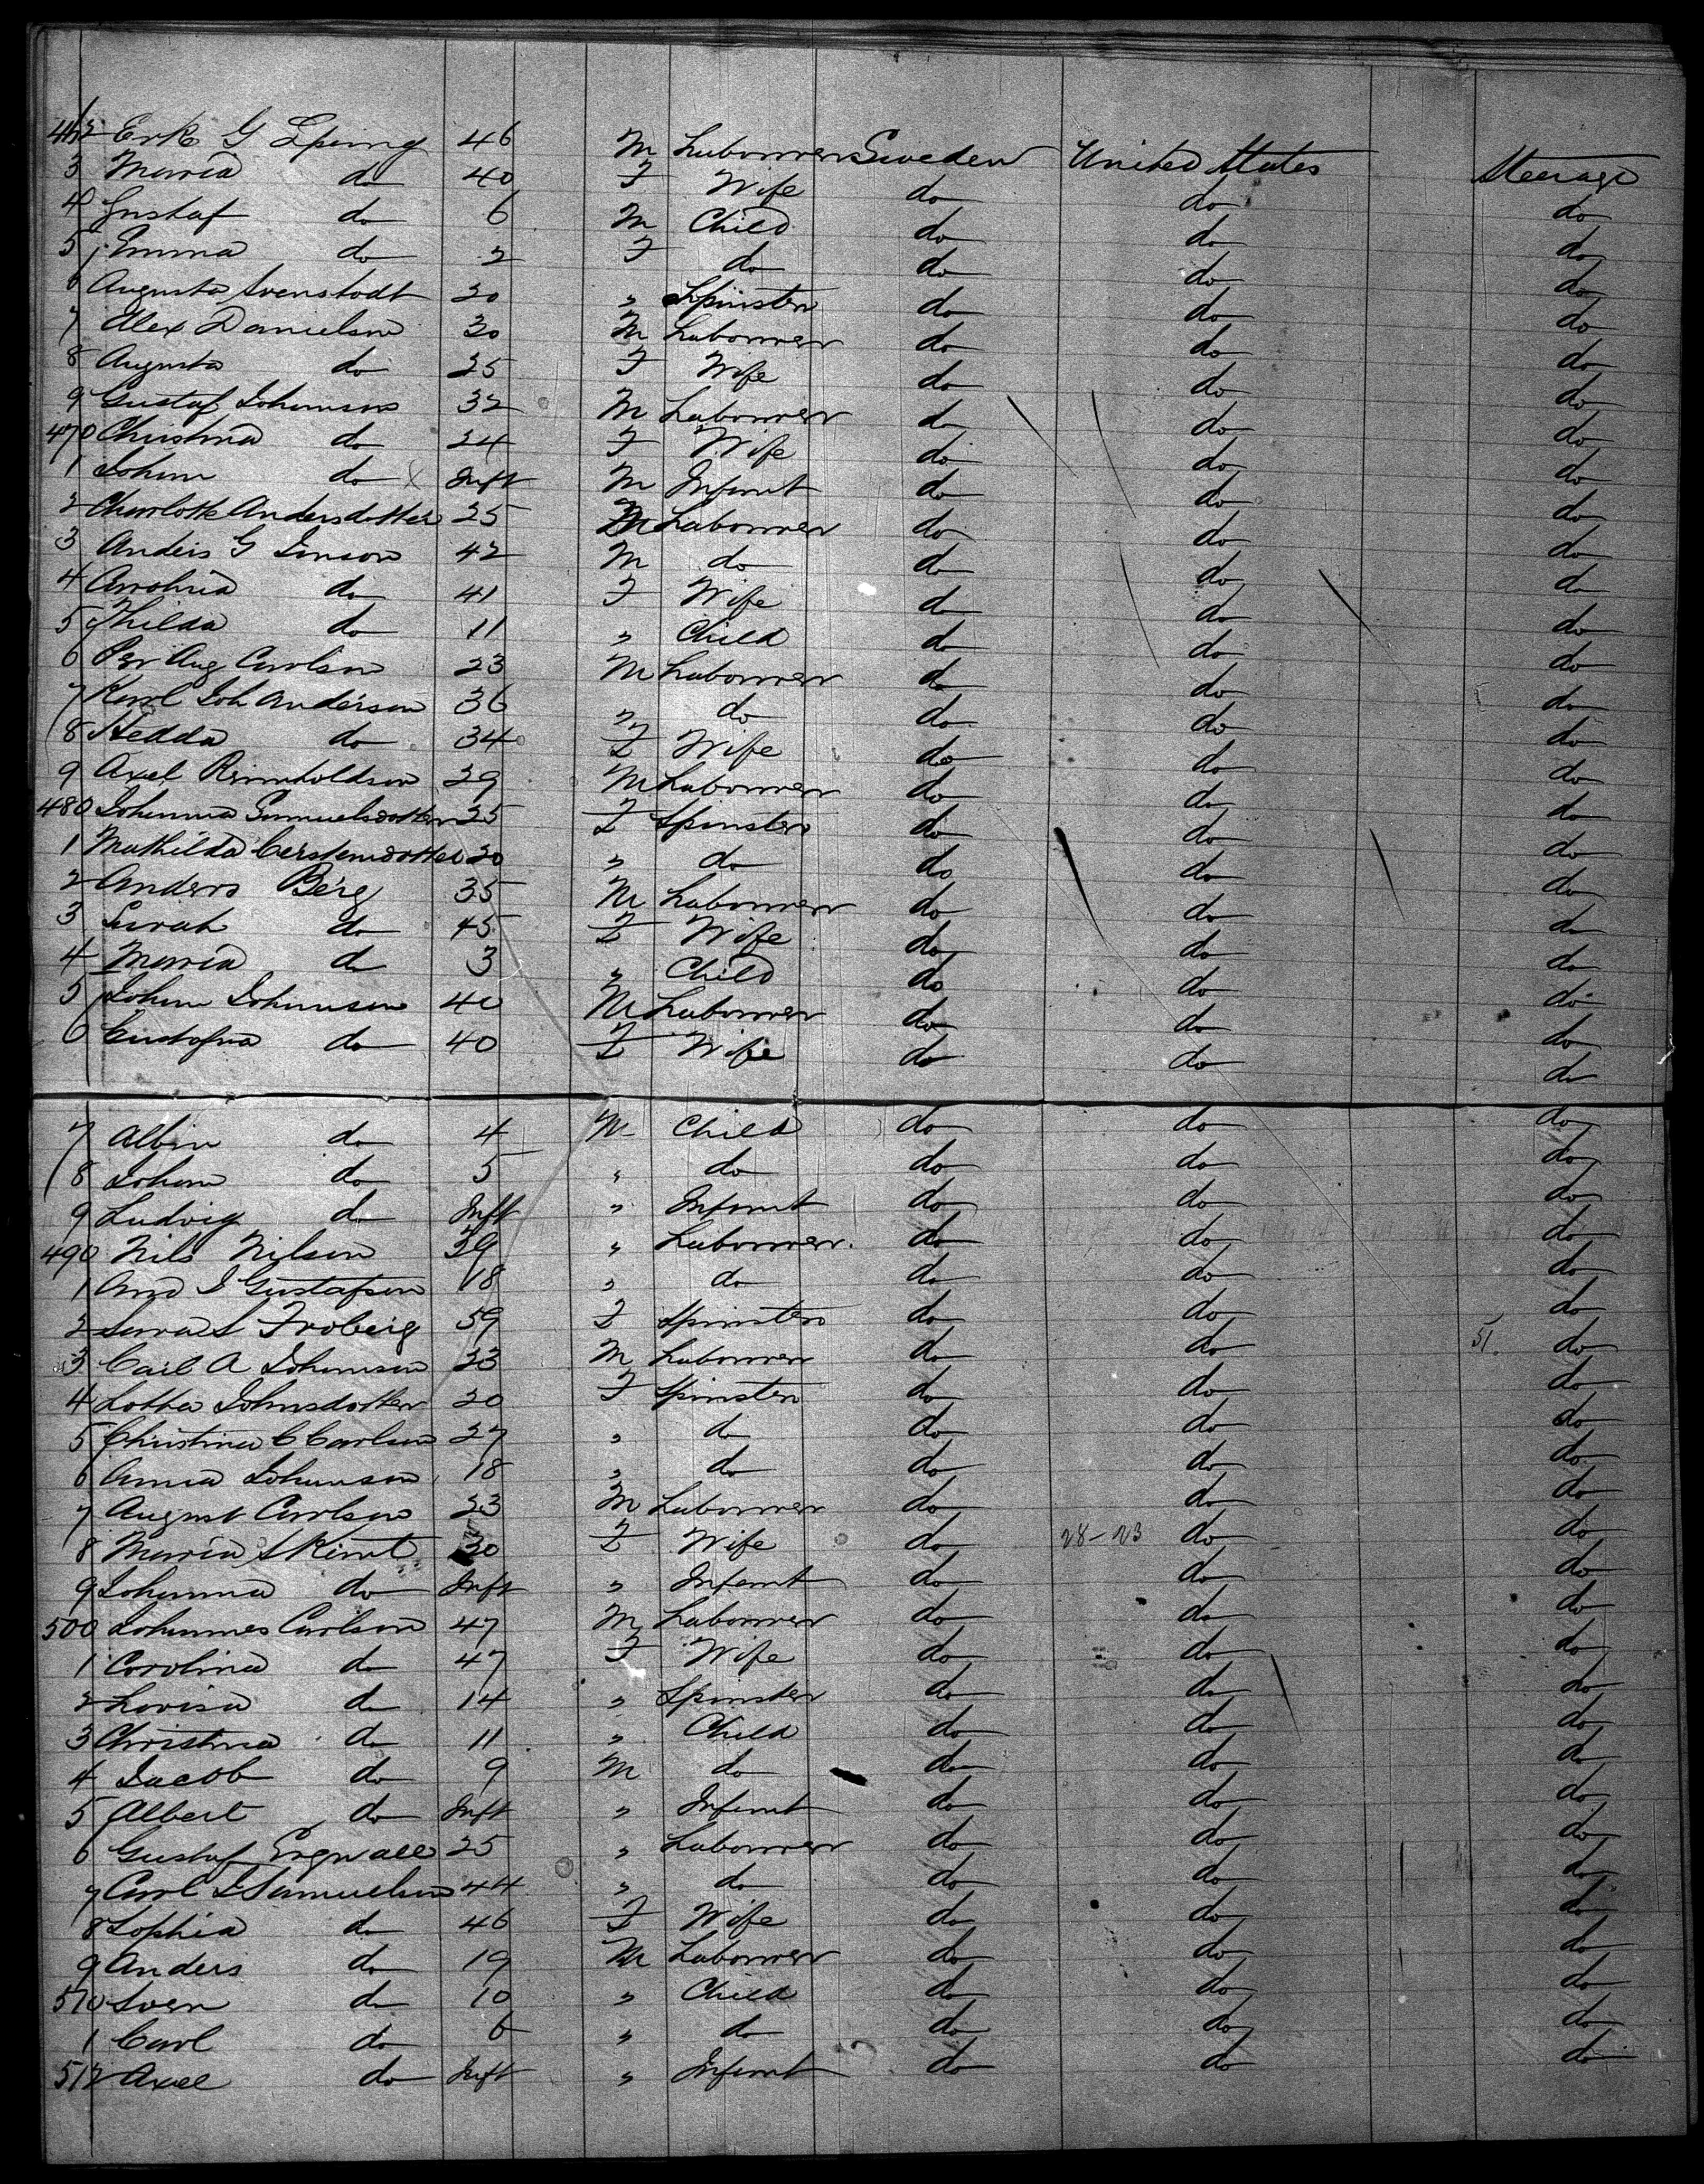 462 Erik G Spring 46 M Labourer Sweden United States Steerage
3 Maria do 40 F Wife do do do
4 Gustaf do 6 M Child do do do
5 Emma do 2 F do do do do
6 Augusta Svenstodt 20 " Spinster do do do
7 Alex Danielson 30 M Labourer do do do
8 Augusta do 25 F Wife do do do
9 Gustaf Johanson 32 M Labourer do do do
470 Christina do 24 F Wife do do do
1 Johan do Inft M Infant do do do
2 Charlotte Andersdotter 25 M Labourer do do do
3 Anders G Jonson 42 M do do do do
4 Carolina do 41 F Wife do do do
5 Thilda do 11 " Child do do do
6 Per Aug Carlson 23 M Labourer do do do
7 Karl Joh Anderson 36 " do do do do
8 Hedda do 34 F Wife do do do
9 Axel Reinholdson 29 M Labourer do do do
480 Johanna Samuelsdotter 25 F Spinster do do do
1 Mathilda Carstensdotter 20 " do do do do
2 Anders Berg 35 M Labourer do do do
3 Sarah do 45 F Wife do do do
4 Maria do 3 " Child do do do
5 Johan Johanson 40 M Labourer do do do
6 Gustafva do 40 F Wife do do do
7 Albin do 4 M Child do do do
8 Johan do 5 " do do do do
9 Ludvig do Inft " Infant do do do
490 Nils Nilson 39 " Labourer do do do
1 J Gustafson 18 " do do do do
2 Sara S Froberg 59 F Spinster do do do
3 Carl A Johanson 23 M Labourer do do 51. do
4 Lotta Johnsdotter 20 F Spinster do do do
5 Christina C Carlson 27 " do do do do
6 Anna Johanson 18 " do do do do
7 August Carlson 23 M Labourer do do do
8 Maria 30 F Wife do 28-23 do do
9 Johanna do Inft " Infant do do do
500 Johannes Carlson 47 M Labourer do do do
1 Carolina do 47 F Wife do do do
2 Lovisa do 14 " Spinster do do do
3 Christina do 11 " Child do do do
4 Jacob do 9 M do do do do
5 Albert do Inft " Infant do do do
6 Gustaf Engwall 25 " Labourer do do do
7 Carl J Samuelson 44 " do do do do
8 Sophia do 46 F Wife do do do
9 Anders do 19 M Labourer do do do
510 Sven do 10 " Child do do do
1 Carl do 6 " do do do do
512 Axel do Inft " Infant do do do